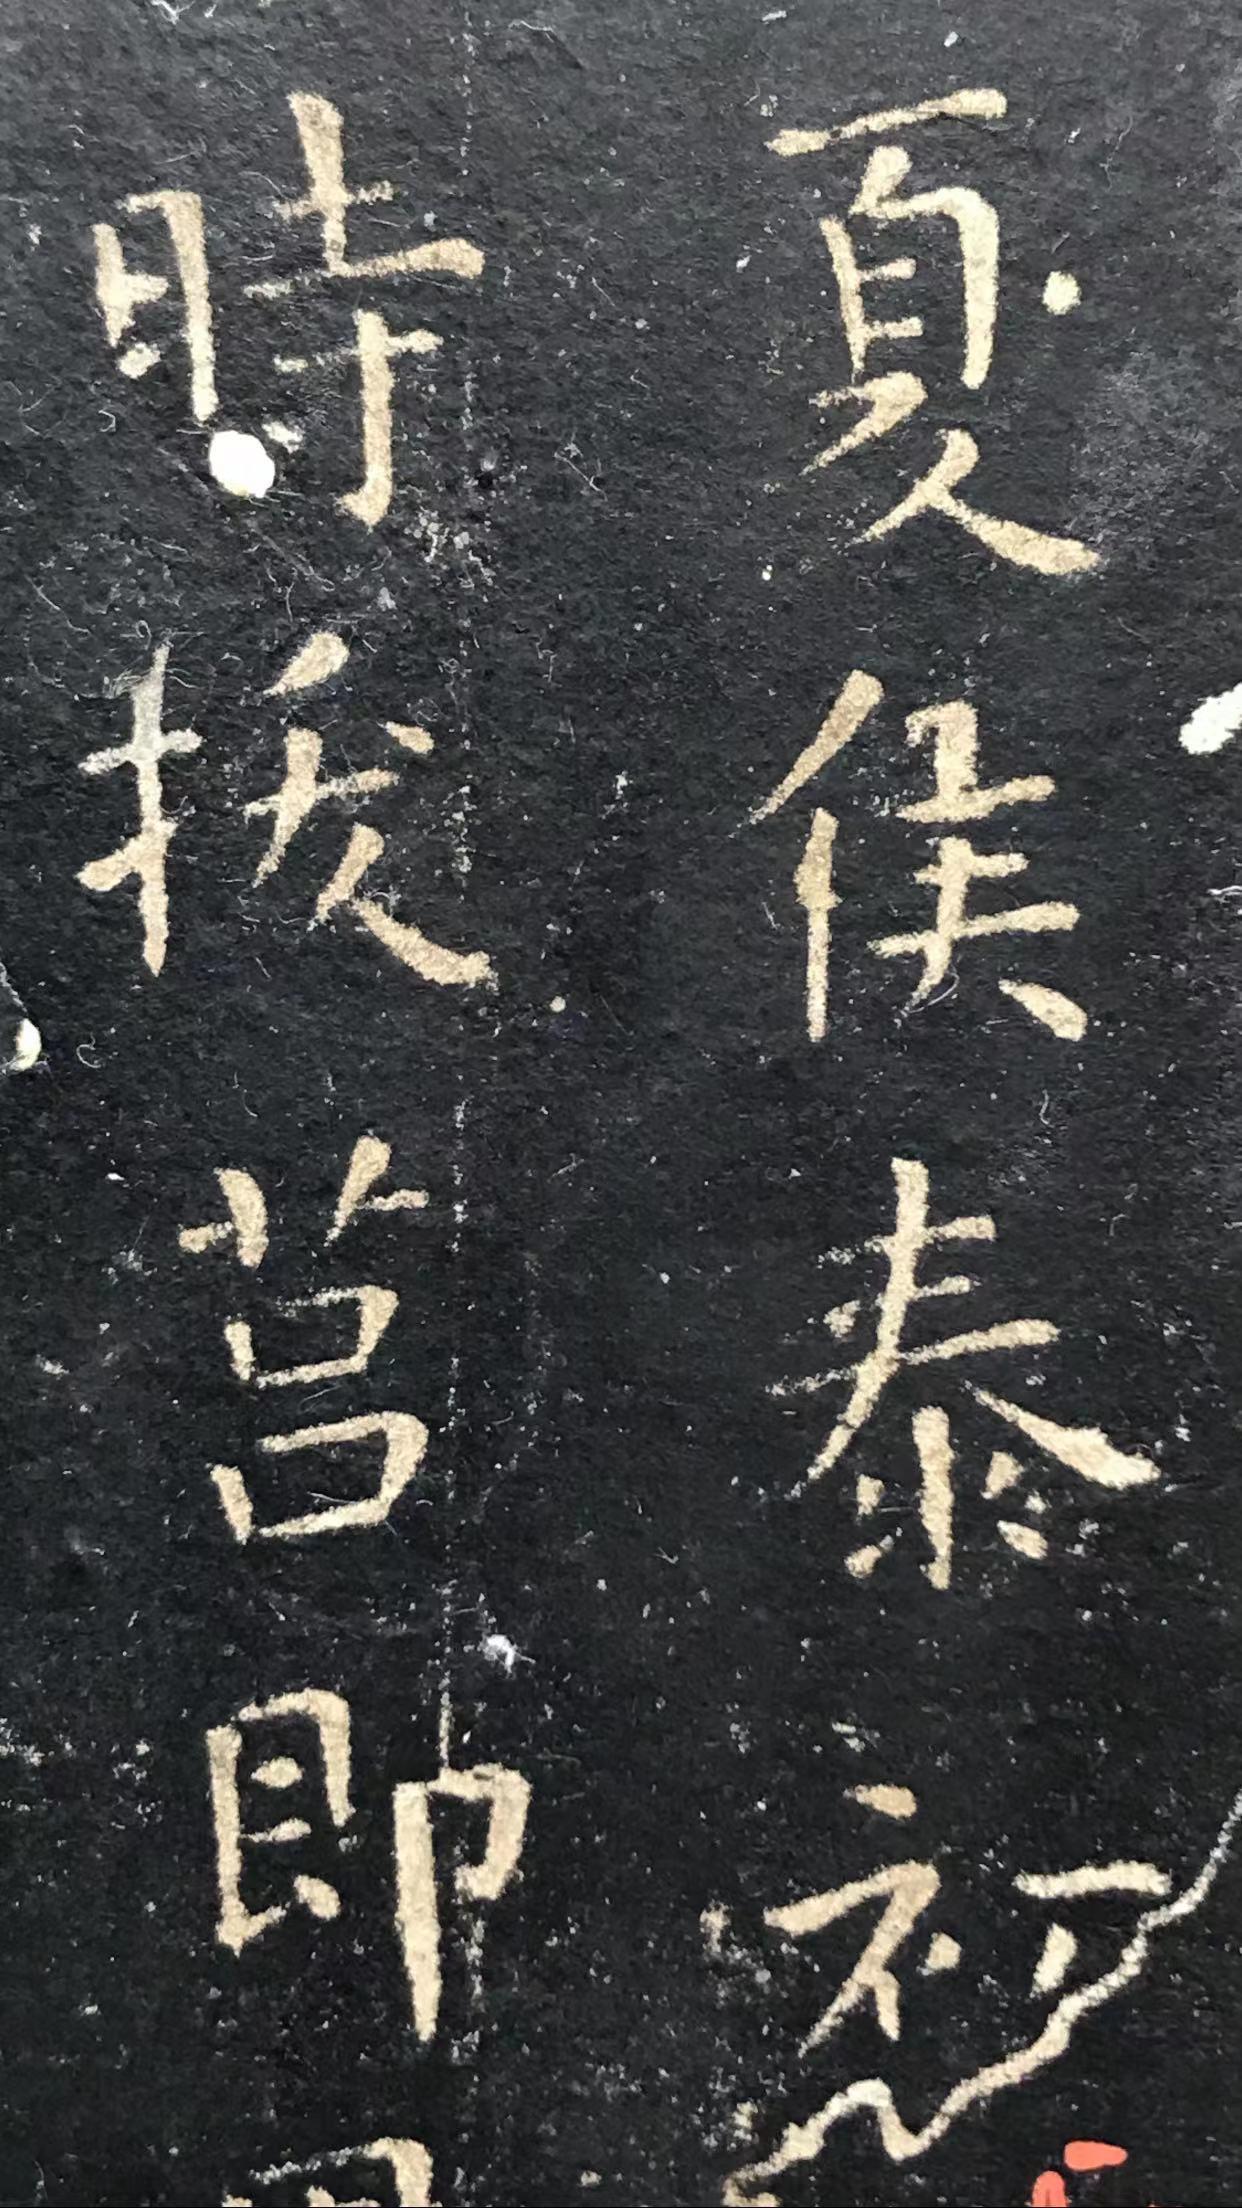 夏侯泰初
時拔莒即